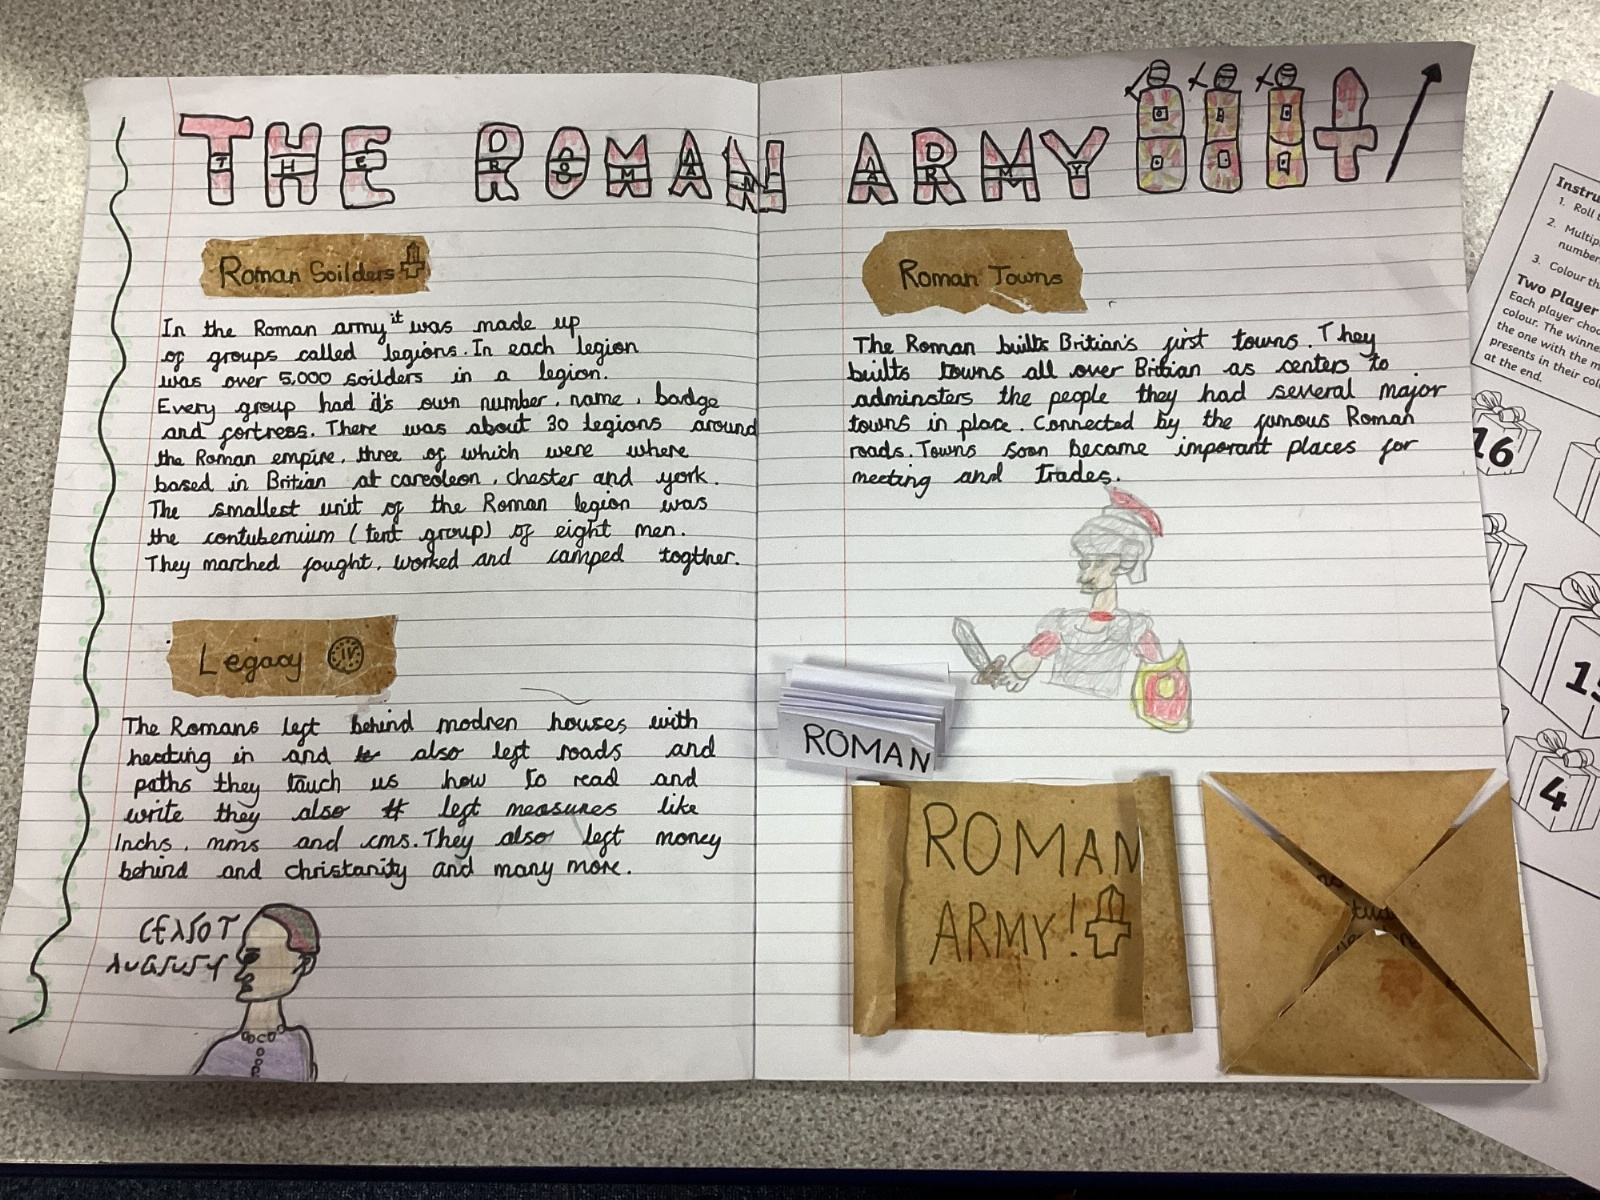 THE ROMAN ARMY
Roman Soilders
In the Roman army it was made up
of groups called legions. In each legion
was over 5,000 soilders in a legion.
Every group had it's own number, name, badge
and fortress. There was about 30 legions around
the Roman empire, three of which were where
based in Britian at careoleon, chester and york.
The smallest unit of the Roman legion was
the contubernium (tent group) of eight men.
They marched fought, worked and camped togther.
Legacy
IV
The Romans left behind modren houses with
heating in and also left roads and
paths they tauch us how to read and
write they also left measures like
Inchs, mms and cms. They also left money
behind and christanity and many more.
Roman Towns
The Roman builts Britian's first towns. They
builts towns all over Britian as centers to
adminsters the people they had several major
towns in place. Connected by the famous Roman
roads. Towns soon became imporant places for
meeting and trades.
ROMAN
ROMAN
ARMY!
1. Roll
2. Multip
number
3. Colour th
Two Player
Each player choo
colour. The winne
the one with the m
presents in their col
at the end.
16
4